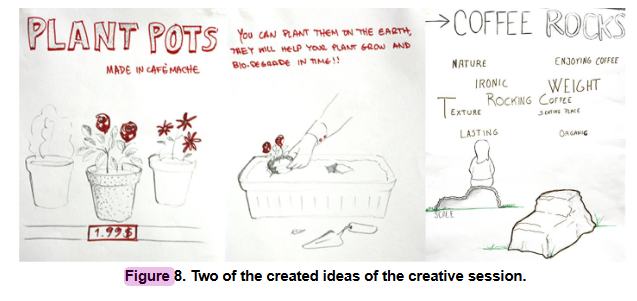 PLANT POTS
MADE IN CAFÉMACHE
1.99$
YOU CAN PLANT THEM ON THE EARTH,
THEY WILL HELP YOUR PLANT GROW AND
BIO-DEGRADE IN TIME!!
→COFFEE ROCKS
NATURE
ENJOYING COFFEE
IRONIC
WEIGHT
ROCKING COFFEE
TEXTURE
LASTING
ORGANIC
SCALE
Figure 8. Two of the created ideas of the creative session.